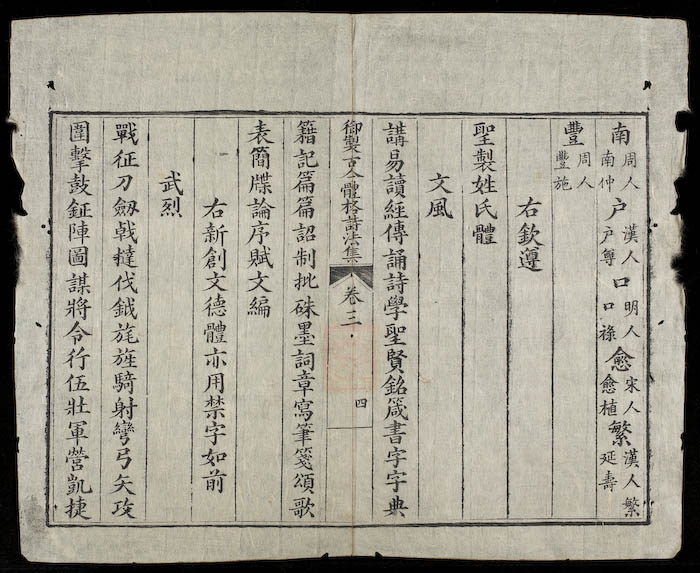 南周人南仲户漢人户尊口明人口祿愈宋人愈植繁漢人繁延壽
豐周人豐施
右欽遵
聖製姓氏體
文風
講易讀經傳誦詩學聖賢銘箴書字字典
御製古今體格詩法集 卷三 四
籍記篇篇詔制批硃墨詞章寫筆箋頌歌
表簡牒論序賦文編
右新創文德體亦用禁字如前
武烈
戰征刀劔戟撻伐鉞旄旌騎射彎弓矢攻
圍擊鼓鉦陣圖謀將令行伍壯軍營凱捷